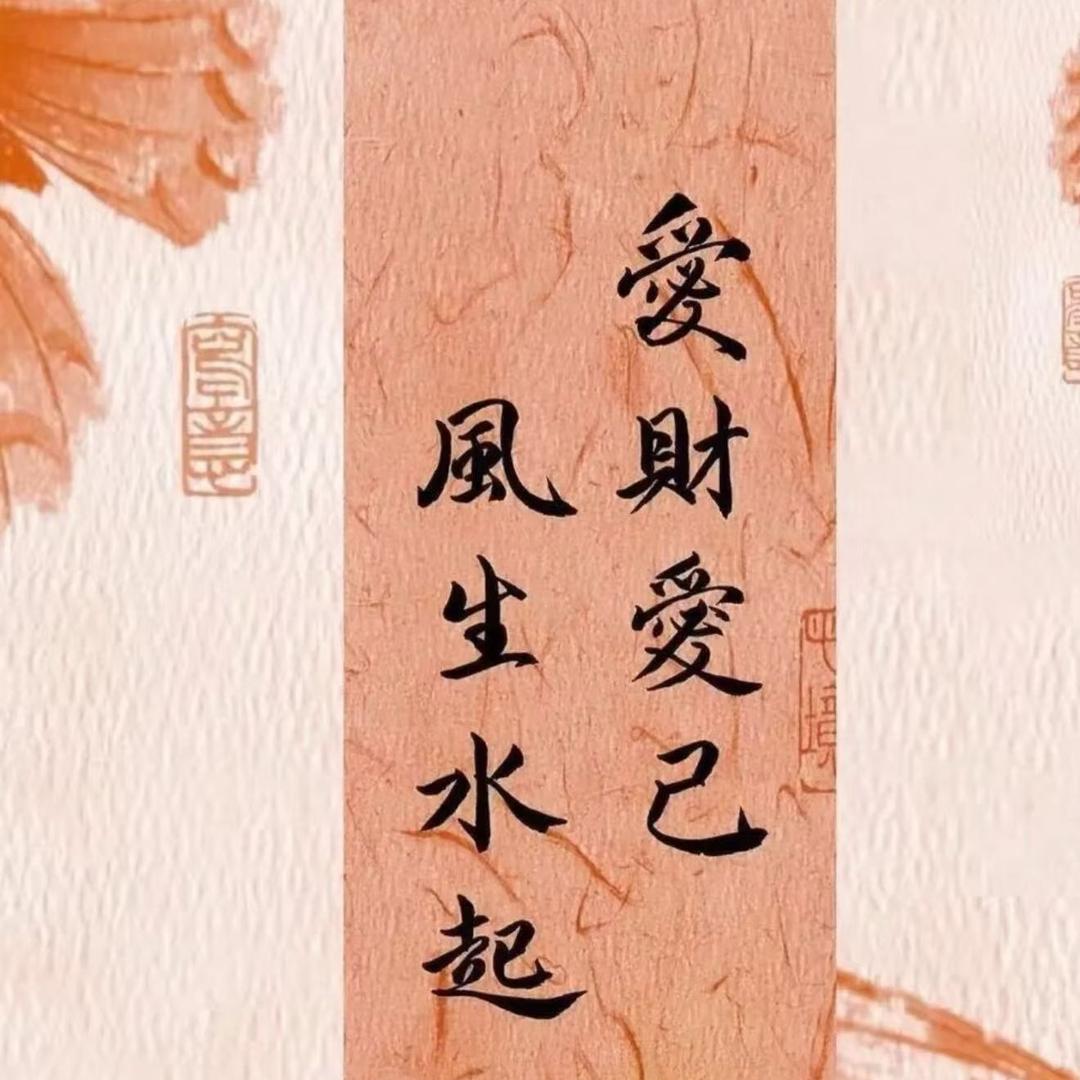 愛財愛己
風生水起